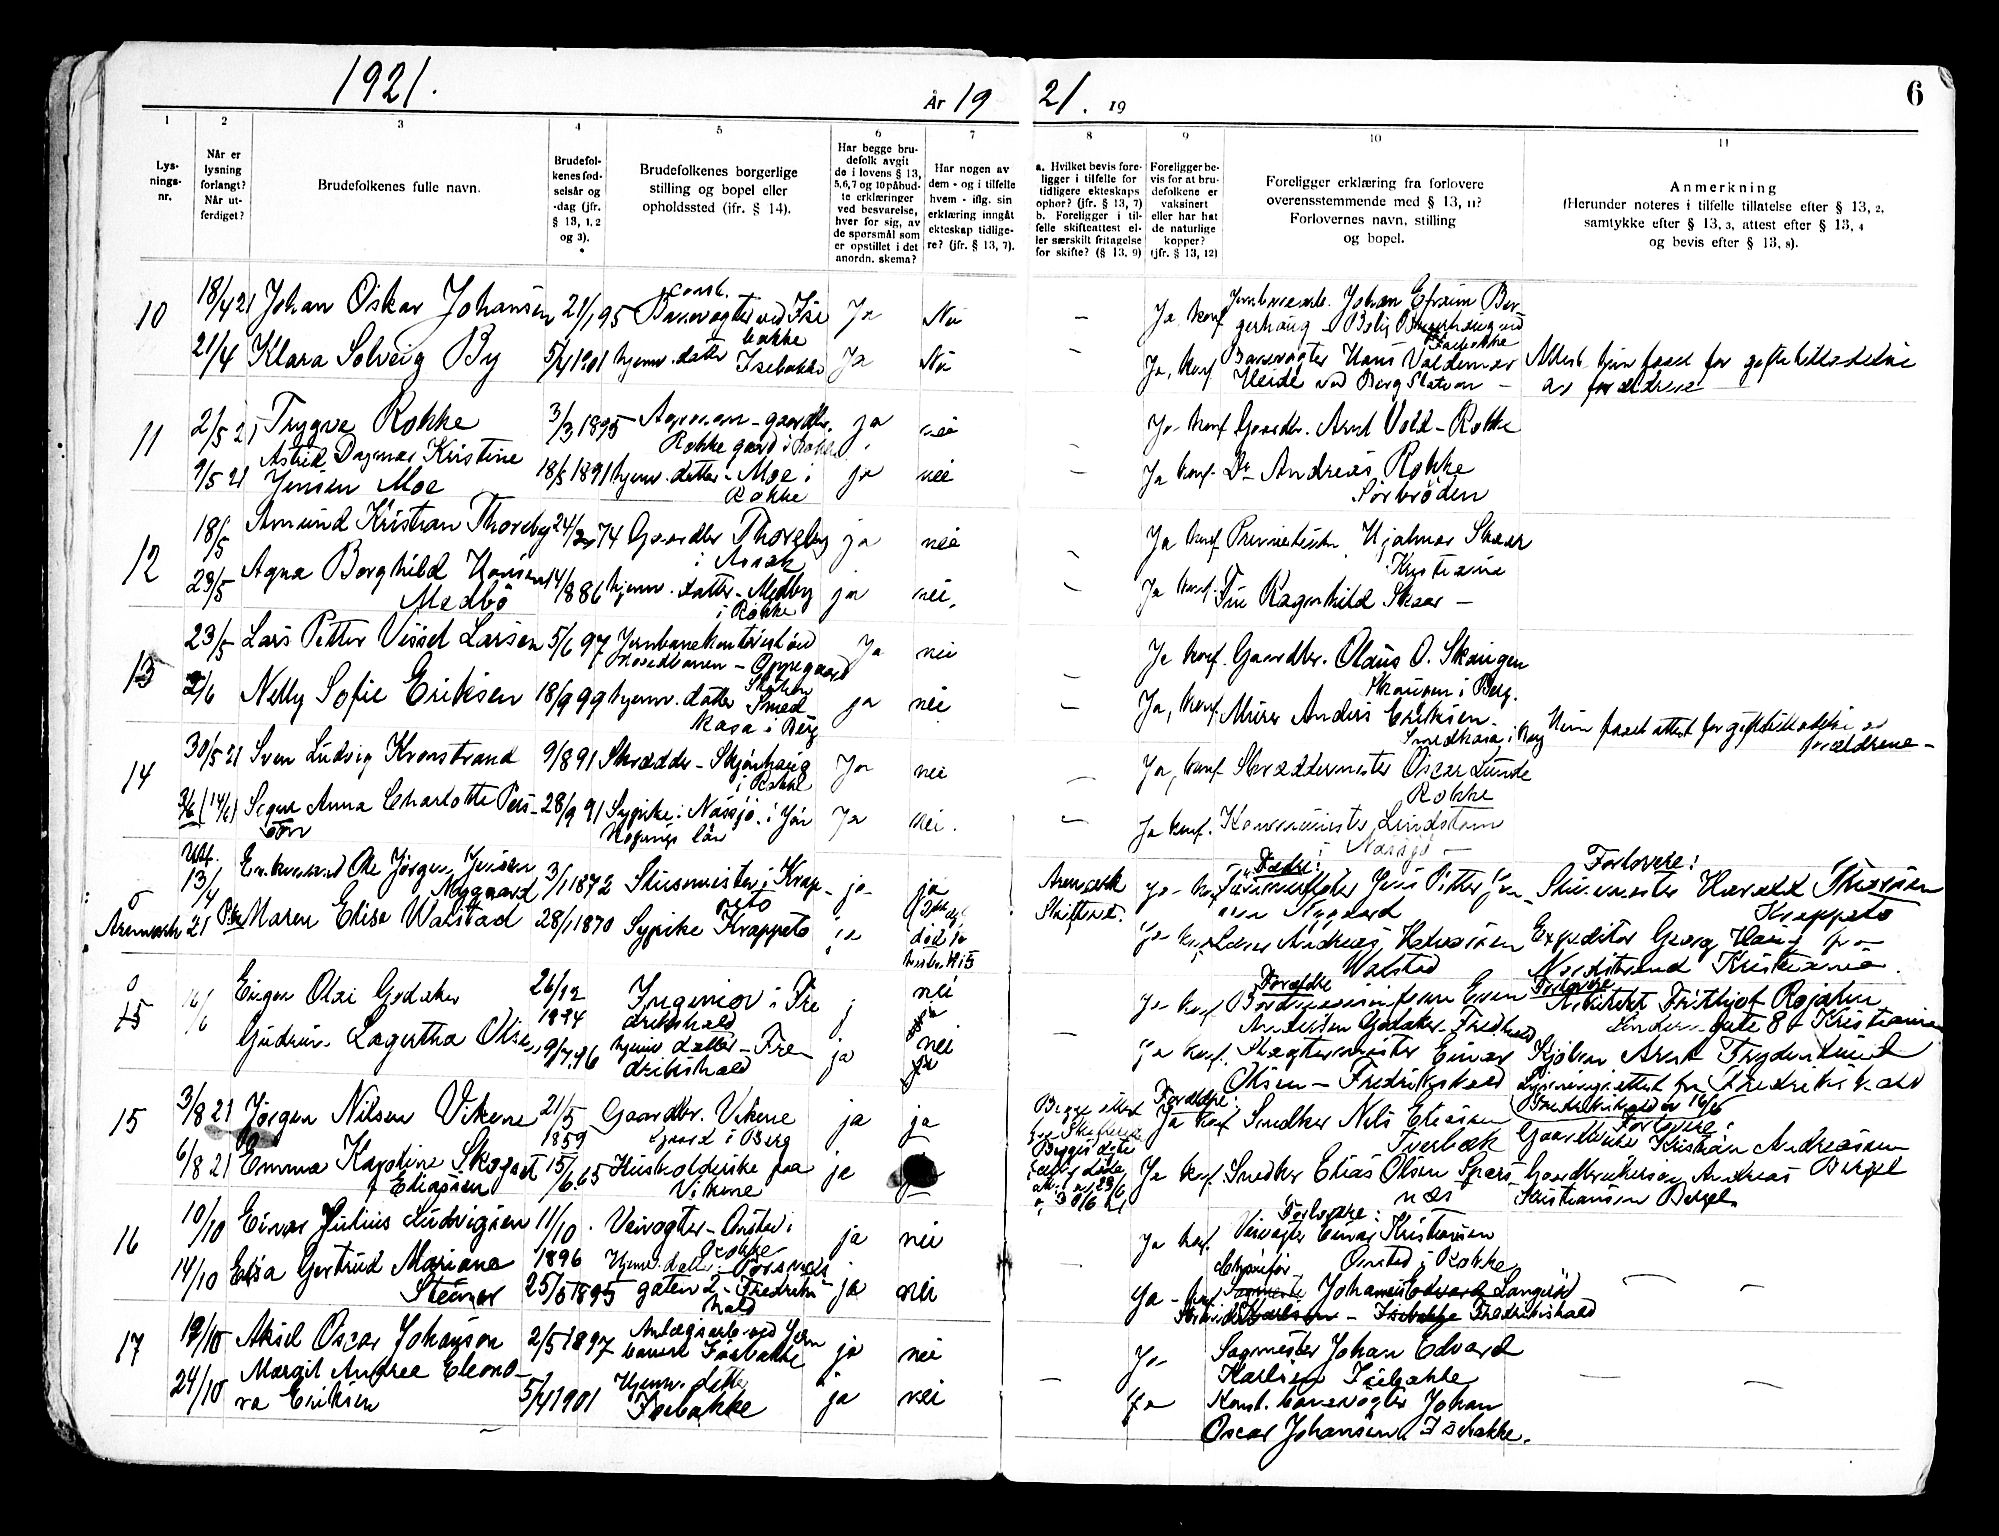 1921.
År 19 21. 19
6
1
2
3
4
5
6
7
8
9
10
11
Lys-
nings-
nr.
Når er
lysning
forlangt?
Når ut-
ferdiget?
Brudefolkenes fulle navn.
Brudefol-
kenes fød-
selsår og
-dag (jfr.
§ 13, 1, 2
og 3).
Brudefolkenes borgerlige
stilling og bopel eller
opholdssted (jfr. § 14).
Har begge bru-
defolk avgit
de i lovens § 13,
5,6,7 og 10 påbud-
te erklæringer
ved besvarelse,
hver for sig, av
de spørsmål som
er opstillet i det
anordn. skema?
Har nogen av
dem - og i tilfelle
hvem - iflg. sin
erklæring inngått
ekteskap tidlige-
re? (jfr. § 13, 7).
a. Hvilket bevis fore-
ligger i tilfelle for
tidligere ekteskaps
ophør? (jfr. § 13, 7)
b. Foreligger i til-
felle skifteattest el-
ler særskilt fritagelse
for skifte? (§ 13, 9)
Foreligger be-
vis for at bru-
defolkene er
vaksinert
eller har hat
de naturlige
kopper?
(jfr. § 13, 12)
Foreligger erklæring fra forlovere
overensstemmende med § 13, 11?
Forlovernes navn, stilling
og bopel.
Anmerkning
(Herunder noteres i tilfelle tillatelse efter § 13, 2,
samtykke efter § 13, 3, attest efter § 13, 4
og bevis efter § 13, 8).
10
18/4 21 Johan Oskar Johansen 21/1 95 const. Banevogter ved Ise
bakke Ja Nei – Ja konf Johan Efraim Ber-
gerhaug
21/4 Klara Solveig By 5/4 1901 hjemv. datter Isebakke Ja Nei – Ja, konf Banevogter Hans Valdemar
Heide ved Berg Station –
av forældrene
11
2/5 21 Trygve Rokke 3/3 1895 Agronom – gaardbr.
Rokke gaard i Rokke ja nei – Ja konf Gaardbr. Arnt Vold – Rokke
9/5 21 Astrid Dagmar Kristine
Jensen Moe 18/5 1891 hjemv. datter – Moe i
Rokke ja nei – Ja konf. Do Andreas Rokke
Sørbrøden
12
18/5 Amund Kristian Thoreby 24/2 74 Gaardbr Thoreby
i Asak ja nei – Ja konf Hjalmar Skaar
Kristiania
23/5 Agna Borghild Hansen
Medbö 14/8 86 hjemv. datter – Medby
i Rokke ja nei. – Ja konf. Fru Ragnhild Skaar –
13
23/5 Lars Petter Vissel Larsen 5/6 97 Jernbanekontorist
– Oppegaard Ja nei Ja konf. Gaardbr. Olaus O. Skaugen
Skaugen i Berg.
2/6 Nelly Sofie Eriksen 18/9 99 hjemv. datter Smed
kasa i Berg ja nei Ja, konf. Murer Anders Eriksen.
Smedkasa i Berg
forældrene –
14
30/5 21 Sven Ludvig Kronstrand 9/8 91 Skrædder – Skjønhaug
i Rokke Ja nei – Ja, konf Skræddermester Oscar Lunde
Rokke
3/6 (14/6) Signe Anna Charlotte Pers-
son 28/9 91 Sypike. Nässjö i Jön
köpings län Ja nei. – Ja konf. Lindstam
i Nässjö –
0
Aremark
Utst.
13/4
21
Enkemand Ole Jørgen Jensen
Nygaard 3/1 1872 Slusemester i Krap-
peto ja ja
Aremark
Skifteret. ja konf Fædre:
Jens Petter Jen-
sen Nygaard
Forlovere:
Slusemester Harald Thorsen
Krappeto
Maren Elise Walstad 28/1 1870 Sypike Krappeto ja
Ja konf Andreas Halvorsen
Walstad
Expeditør Georg Haug fra
Nordstrand Kristiania.
0
15
Eugen Olai Gjedaker 26/12
1894 Ingeniør i Fre
drikshald j nei
Forældre
ja konf Even
Andersen Gjødaker. Fredhald
Forlovere
Arkitekt Frithjof Rojahn
gate 8 Kristiania
Gudrun Lagertha Olsen 9/7 96 hjemv datter – Fre-
drikshald ja nei
– ja konf. Slagtermester Einar
Olsen – Fredrikshald
Lysningsattest fra Fredrikshald
15
3/8 21 Jørgen Nilsen Vikene 21/5
1859 Gaardbr. Vikene
Gaard i Berg ja ja
Forældre:
Ja konf Smedker Nils Eliassen
Tverbæk
Forlovere:
Gaardbruker Kristian Andreassen
Berget
6/8 21 Emma Karoline Skogset
f Eliassen 15/6 65 Husholderske paa
Vikene ja
Ja konf. Snedker Elias Olsen Spers-
næs
Gaardbrukersøn Andreas
Kristiansen Berget
16
10/10 Einar Julius Ludvigsen 11/10.
1896 Veivogter – Onstad i
Rokke ja nei
Forlovere:
Ja konf. Veivogter Einar Kristiansen
Onstad i Rokke
14/10 Elsa Gertrud Mariane
Steiner 25/5 1895 Hjemv. datter Porsnæs
gaten 2 – Fredriks
hald ja nei
– Ja – konf Chauffør Johannes Edvard Langrød
– Isebakke Fredrikshald – –
17
19/10 Aksel Oscar Johansen 2/5 1897 Anlægsarb. ved Jern
banen Isebakke ja nei
Ja Sagmester Johan Edvard
Karlsen Isebakke
24/10 Margit Andrea Eleono-
ra Eriksen 5/4 1901 Hjemv. datter
Isebakke ja nei
– ja Konst. banevogter Johan
Oscar Johansen, Isebakke. – –